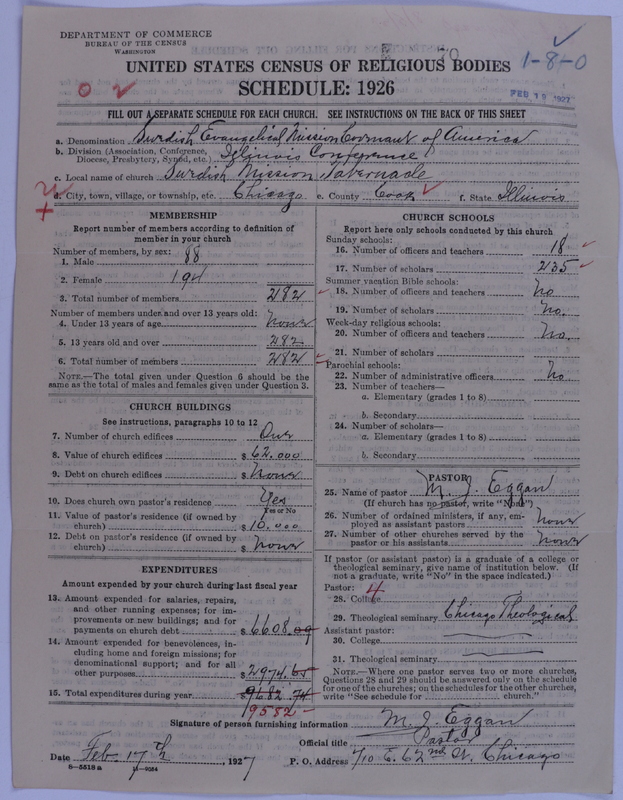 DEPARTMENT OF COMMERCE
BUREAU OF THE CENSUS
WASHINGTON
1-8-0
UNITED STATES CENSUS OF RELIGIOUS BODIES
SCHEDULE: 1926
FEB 18 1927
FILL OUT A SEPARATE SCHEDULE FOR EACH CHURCH. SEE INSTRUCTIONS ON THE BACK OF THIS SHEET
a. Denomination Swedish Evangelical Mission Covenant of America
b. Division (Association, Conference, Diocese, Presbytery, Synod, etc.) Illinois Conference
c. Local name of church Swedish Mission Tabernacle
d. City, town, village, or township, etc. Chicago e. County Cook f. State Illinois
MEMBERSHIP
Report number of members according to definition of
member in your church
Number of members, by sex:
1. Male 88
2. Female 194
3. Total number of members 282
Number of members under and over 13 years old:
4. Under 13 years of age None
5. 13 years old and over 282
6. Total number of members 282
NOTE.—The total given under Question 6 should be the
same as the total of males and females given under Question 3.
CHURCH BUILDINGS
See instructions, paragraphs 10 to 12
7. Number of church edifices One
8. Value of church edifices $ 62,000
9. Debt on church edifices $ None
10. Does church own pastor's residence Yes
Yes or No
11. Value of pastor's residence (if owned by
church) $ 10,000
12. Debt on pastor's residence (if owned by
church) $ None
EXPENDITURES
Amount expended by your church during last fiscal year
13. Amount expended for salaries, repairs,
and other running expenses; for im-
provements or new buildings; and for
payments on church debt $ 6608.09
14. Amount expended for benevolences, in-
cluding home and foreign missions; for
denominational support; and for all
other purposes $ 2974.65
15. Total expenditures during year $ 9682.74
9582
CHURCH SCHOOLS
Report here only schools conducted by this church
Sunday schools:
16. Number of officers and teachers 18
17. Number of scholars 235
Summer vacation Bible schools:
18. Number of officers and teachers No
19. Number of scholars No.
Week-day religious schools:
20. Number of officers and teachers No.
21. Number of scholars
Parochial schools:
22. Number of administrative officers No
23. Number of teachers—
a. Elementary (grades 1 to 8)
b. Secondary
24. Number of scholars—
a. Elementary (grades 1 to 8)
b. Secondary
PASTOR
25. Name of pastor M. J. Eggan
(If church has no pastor, write "None")
26. Number of ordained ministers, if any, em-
ployed as assistant pastors None
27. Number of other churches served by the
pastor or his assistants None
If pastor (or assistant pastor) is a graduate of a college or
theological seminary, give name of institution below. (If
not a graduate, write "No" in the space indicated.)
Pastor: 4
28. College
29. Theological seminary Chicago Theological
Assistant pastor:
30. College
31. Theological seminary
NOTE.—Where one pastor serves two or more churches,
Questions 28 and 29 should be answered only on the schedule
for one of the churches; on the schedules for the other churches,
write "See schedule for church."
Signature of person furnishing information M. J. Eggan
Official title Pastor
Date Feb 17th, 1927 P. O. Address 710 E. 62nd St. Chicago
8-5518 a 11-9054